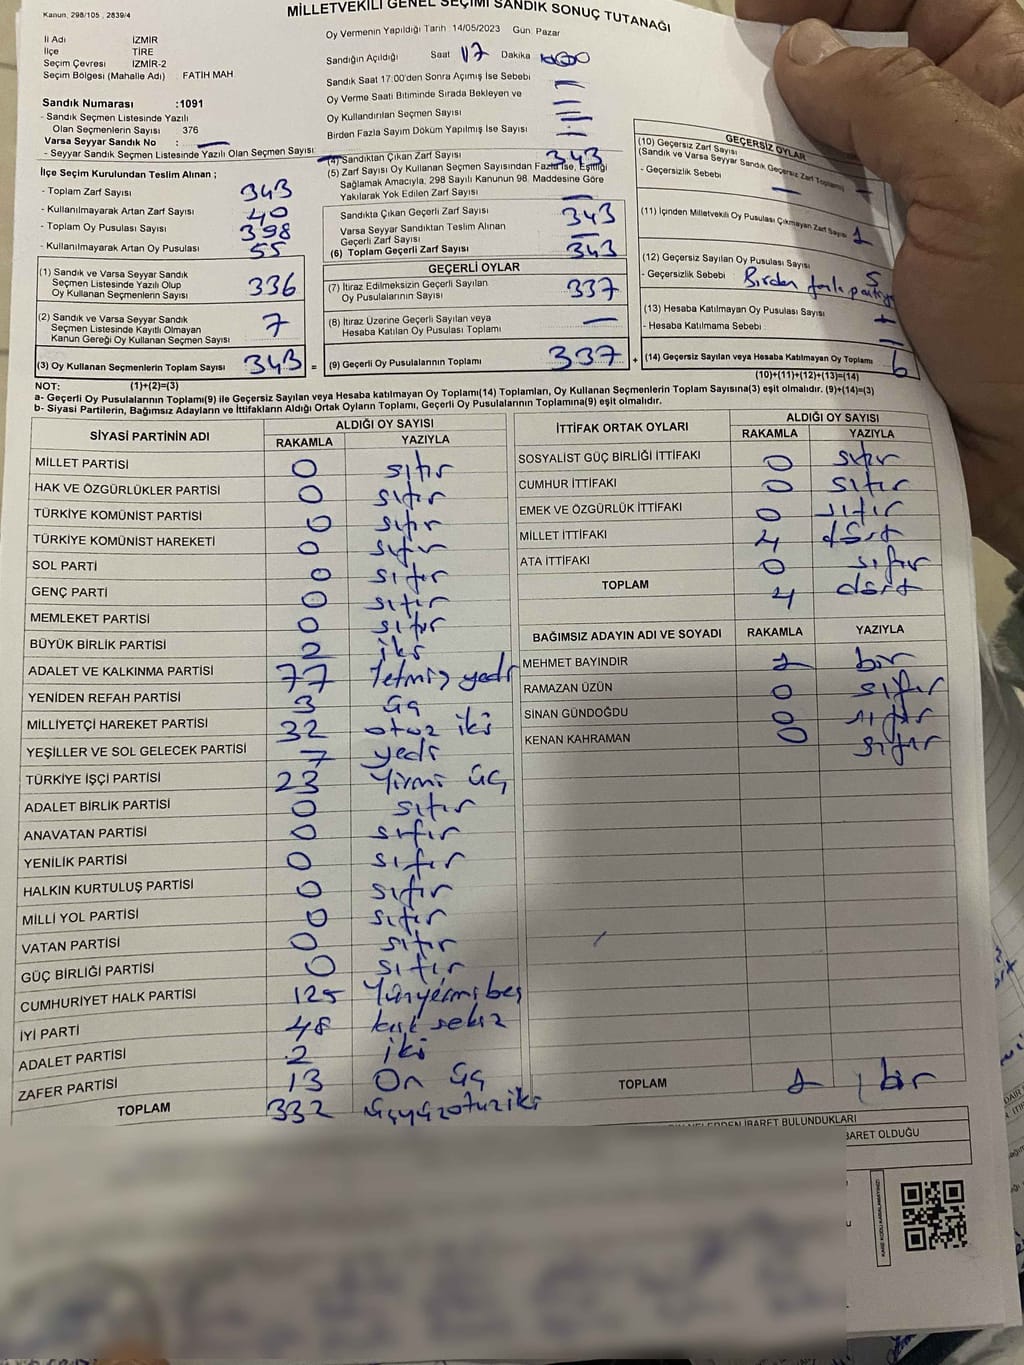 Kanun, 298/105 , 2839/4
MİLLETVEKİLİ GENEL SEÇİMİ SANDIK SONUÇ TUTANAĞI
İl Adı İZMİR
İlçe TİRE
Seçim Çevresi İZMİR-2
Seçim Bölgesi (Mahalle Adı) FATİH MAH.
Sandık Numarası :1091
- Sandık Seçmen Listesinde Yazılı
Olan Seçmenlerin Sayısı 376
Varsa Seyyar Sandık No : —
- Seyyar Sandık Seçmen Listesinde Yazılı Olan Seçmen Sayısı: —
Oy Vermenin Yapıldığı Tarih 14/05/2023 Gün: Pazar
Sandığın Açıldığı Saat 17 Dakika
Sandık Saat 17:00'den Sonra Açımış İse Sebebi —
Oy Verme Saati Bitiminde Sırada Bekleyen ve
Oy Kullandırılan Seçmen Sayısı
Birden Fazla Sayım Döküm Yapılmış İse Sayısı
İlçe Seçim Kurulundan Teslim Alınan ;
- Toplam Zarf Sayısı 343
- Kullanılmayarak Artan Zarf Sayısı 40
- Toplam Oy Pusulası Sayısı 398
- Kullanılmayarak Artan Oy Pusulası 55
(1) Sandık ve Varsa Seyyar Sandık
Seçmen Listesinde Yazılı Olup
Oy Kullanan Seçmenlerin Sayısı 336
(2) Sandık ve Varsa Seyyar Sandık
Seçmen Listesinde Kayıtlı Olmayan
Kanun Gereği Oy Kullanan Seçmen Sayısı 7
(3) Oy Kullanan Seçmenlerin Toplam Sayısı 343 =
(4) Sandıktan Çıkan Zarf Sayısı 343
(5) Zarf Sayısı Oy Kullanan Seçmen Sayısından Fazla İse, Eşitliği
Sağlamak Amacıyla, 298 Sayılı Kanunun 98. Maddesine Göre
Yakılarak Yok Edilen Zarf Sayısı —
Sandıkta Çıkan Geçerli Zarf Sayısı 343
Varsa Seyyar Sandıktan Teslim Alınan
Geçerli Zarf Sayısı —
(6) Toplam Geçerli Zarf Sayısı 343
GEÇERLİ OYLAR
(7) İtiraz Edilmeksizin Geçerli Sayılan
Oy Pusulalarının Sayısı 337
(8) İtiraz Üzerine Geçerli Sayılan veya
Hesaba Katılan Oy Pusulası Toplamı —
(9) Geçerli Oy Pusulalarının Toplamı 337 +
GEÇERSİZ OYLAR
(10) Geçersiz Zarf Sayısı
(Sandık ve Varsa Seyyar Sandık Geçersiz Zarf Toplamı) —
- Geçersizlik Sebebi —
(11) İçinden Milletvekili Oy Pusulası Çıkmayan Zarf Sayısı 1
(12) Geçersiz Sayılan Oy Pusulası Sayısı 5
- Geçersizlik Sebebi Birden fazla partiye
(13) Hesaba Katılmayan Oy Pusulası Sayısı —
- Hesaba Katılmama Sebebi —
(14) Geçersiz Sayılan veya Hesaba Katılmayan Oy Toplamı 6
(10)+(11)+(12)+(13)=(14)
NOT: (1)+(2)=(3)
a- Geçerli Oy Pusulalarının Toplamı(9) ile Geçersiz Sayılan veya Hesaba katılmayan Oy Toplamı(14) Toplamları, Oy Kullanan Seçmenlerin Toplam Sayısına(3) eşit olmalıdır. (9)+(14)=(3)
b- Siyasi Partilerin, Bağımsız Adayların ve İttifakların Aldığı Ortak Oyların Toplamı, Geçerli Oy Pusulalarının Toplamına(9) eşit olmalıdır.
SİYASİ PARTİNİN ADI ALDIĞI OY SAYISI
RAKAMLA YAZIYLA
MİLLET PARTİSİ 0 sıfır
HAK VE ÖZGÜRLÜKLER PARTİSİ 0 sıfır
TÜRKİYE KOMÜNİST PARTİSİ 0 sıfır
TÜRKİYE KOMÜNİST HAREKETİ 0 sıfır
SOL PARTİ 0 sıfır
GENÇ PARTİ 0 sıfır
MEMLEKET PARTİSİ 0 sıfır
BÜYÜK BİRLİK PARTİSİ 2 iki
ADALET VE KALKINMA PARTİSİ 77 Yetmiş yedi
YENİDEN REFAH PARTİSİ 3 üç
MİLLİYETÇİ HAREKET PARTİSİ 32 otuz iki
YEŞİLLER VE SOL GELECEK PARTİSİ 7 yedi
TÜRKİYE İŞÇİ PARTİSİ 23 Yirmi üç
ADALET BİRLİK PARTİSİ 0 sıfır
ANAVATAN PARTİSİ 0 sıfır
YENİLİK PARTİSİ 0 sıfır
HALKIN KURTULUŞ PARTİSİ 0 sıfır
MİLLİ YOL PARTİSİ 0 sıfır
VATAN PARTİSİ 0 sıfır
GÜÇ BİRLİĞİ PARTİSİ 0 sıfır
CUMHURİYET HALK PARTİSİ 125 Yüzyirmibeş
İYİ PARTİ 48 kırk sekiz
ADALET PARTİSİ 2 iki
ZAFER PARTİSİ 13 On üç
TOPLAM 332 üçyüzotuziki
İTTİFAK ORTAK OYLARI ALDIĞI OY SAYISI
RAKAMLA YAZIYLA
SOSYALİST GÜÇ BİRLİĞİ İTTİFAKI 0 sıfır
CUMHUR İTTİFAKI 0 sıfır
EMEK VE ÖZGÜRLÜK İTTİFAKI 0 sıfır
MİLLET İTTİFAKI 4 dört
ATA İTTİFAKI 0 sıfır
TOPLAM 4 dört
BAĞIMSIZ ADAYIN ADI VE SOYADI RAKAMLA YAZIYLA
MEHMET BAYINDIR 1 bir
RAMAZAN ÜZÜN 0 sıfır
SİNAN GÜNDOĞDU 0 sıfır
KENAN KAHRAMAN 0 sıfır
TOPLAM 1 bir
İBARET BULUNDUKLARI
BARET OLDUĞU